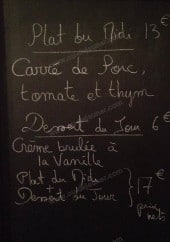 Plat du Midi 13€
Carré de Porc,
tomate et thym
Dessert du Jour 6€
Crème brulée à
la Vanille
Plat du Midi
+
Dessert du Jour } 17€
prix
nets